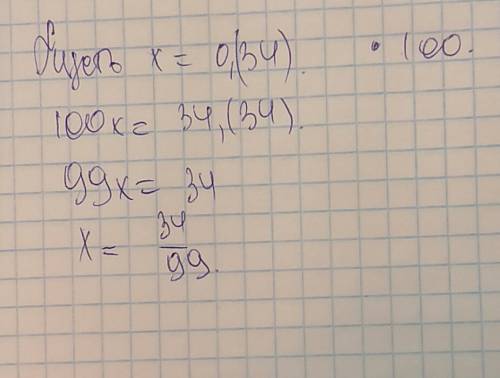 x = 0,(34). • 100.
100x = 34,(34).
99x = 34
x = 34/99.